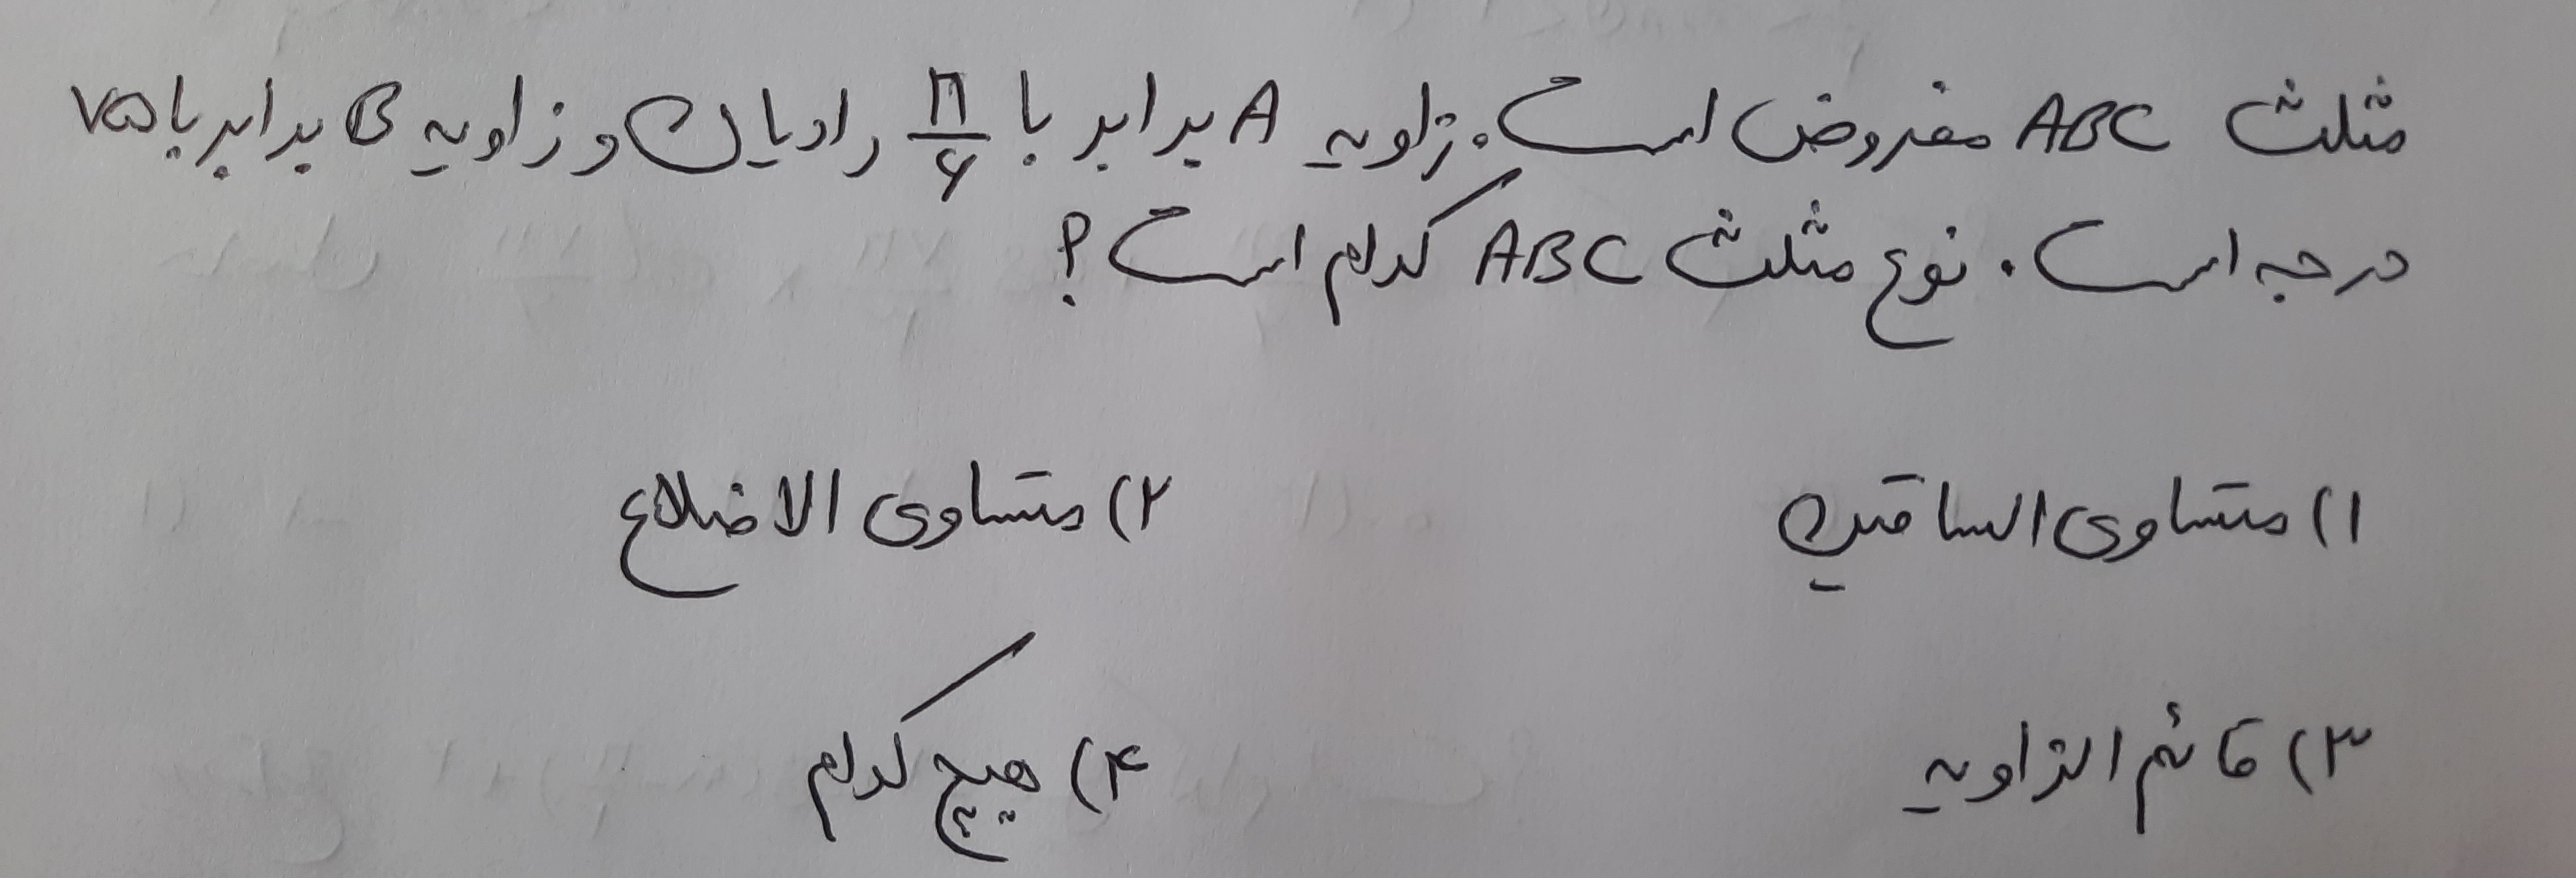 مثلث ABC مفروض است. زاویه A برابر با π/۶ رادیان و زاویه B برابر با ۷۵
درجه است. نوع مثلث ABC کدام است؟
۱) متساوی الساقین
۲) متساوی الاضلاع
۳) قائم الزاویه
۴) هیچ کدام